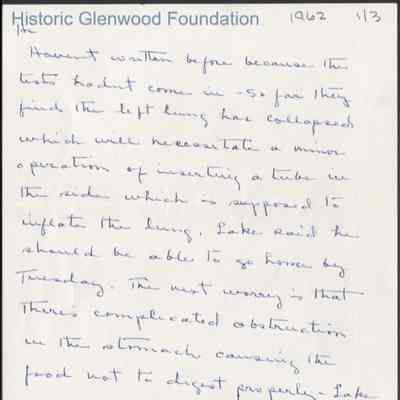 Historic Glenwood Foundation 1962 1/3
Haven't written before because the
tests hadn't come in - So far they
find the left lung has collapsed
which will necessitate a minor
operation of inserting a tube in
the side which is supposed to
inflate the lung. Lake said he
should be able to go home by
Tuesday. The next worry is that
there's complicated obstruction
in the stomach causing the
food not to digest properly - Lake